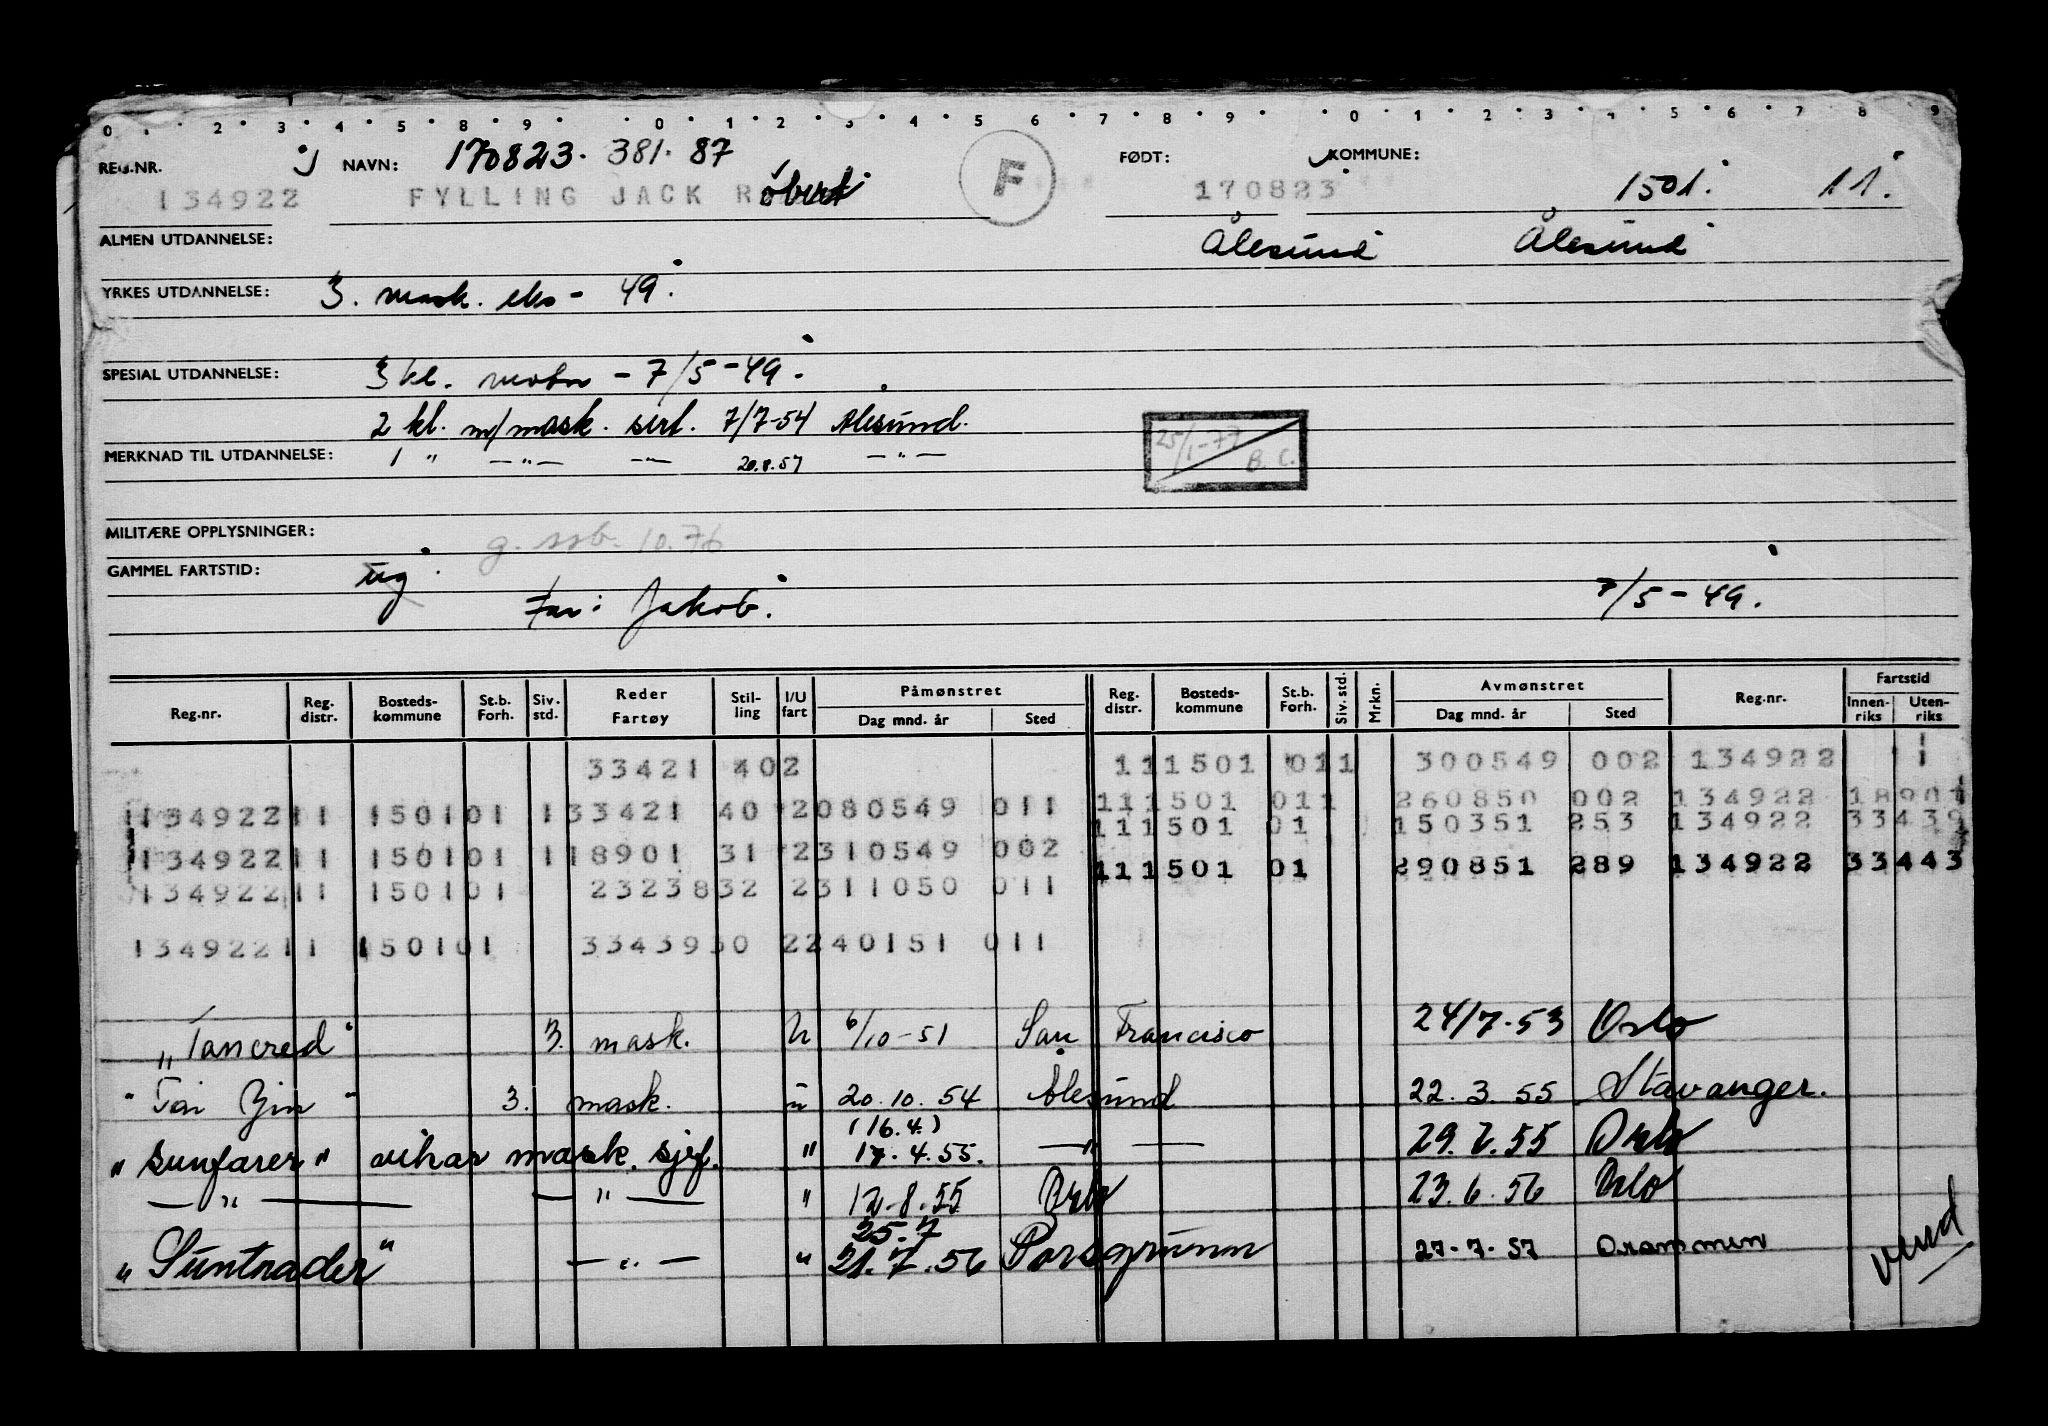 0 1 2 3 4 5 6 7 8 9 0 1 2 3 4 5 6 7 8 9 0 1 2 3 4 5 6 7 8 9
REG.NR. NAVN: 170823. 381. 87 F FØDT: KOMMUNE:
134922 FYLLING JACK Robert 170823 1501. 11.
ALMEN UTDANNELSE: Ålesund Ålesund
YRKES UTDANNELSE: 3. mask. eks - 49.
SPESIAL UTDANNELSE: 3 kl. motor - 7/5-49.
2 kl. m/mask. sert. 7/7-54 Ålesund.
MERKNAD TIL UTDANNELSE: 1 " -"- -"- 20.8.57 -"-
25/1-77 B.C.
MILITÆRE OPPLYSNINGER: 10.76
GAMMEL FARTSTID: ug
Far: Jakob. 7/5-49.
Reg.nr. Reg. distr. Bosteds-kommune St.b. Forh. Siv. std. Reder Fartøy Stil-ling I/U fart Påmønstret Dag mnd. år Sted Reg. distr. Bosteds-kommune St.b. Forh. Siv. std. Mrkn. Avmønstret Dag mnd. år Sted Reg.nr. Fartstid Innen-riks Uten-riks
33421 402 111501 011 300549 002 134922 1
134922 11 1501 01 1 33421 40 2 080549 011 111501 011 260850 002 134922 18901
111501 01 150351 253 134922 33439
134922 11 1501 01 1 18901 31 2 310549 002 111501 01 290851 289 134922 33443
134922 11 1501 01 23238 32 2 311050 011
134922 11 1501 01 33439 30 2 240151 011
"Tancred" 3. mask. U 6/10-51 San Francisco 24/7-53 Oslo
"Tai Yin" 3. mask. u 20.10.54 Ålesund 22.3.55 Stavanger.
(16.4.)
"Sunfarer" vikar mask. sjef. " 17.4.55. -"- 29.7.55 Oslo
-"- -"- " 12.8.55 Oslo 23.6.56 Oslo
25.7
"Suntrader" -"- " 21.7.56 Porsgrunn 27-7-57 Drammen
vend